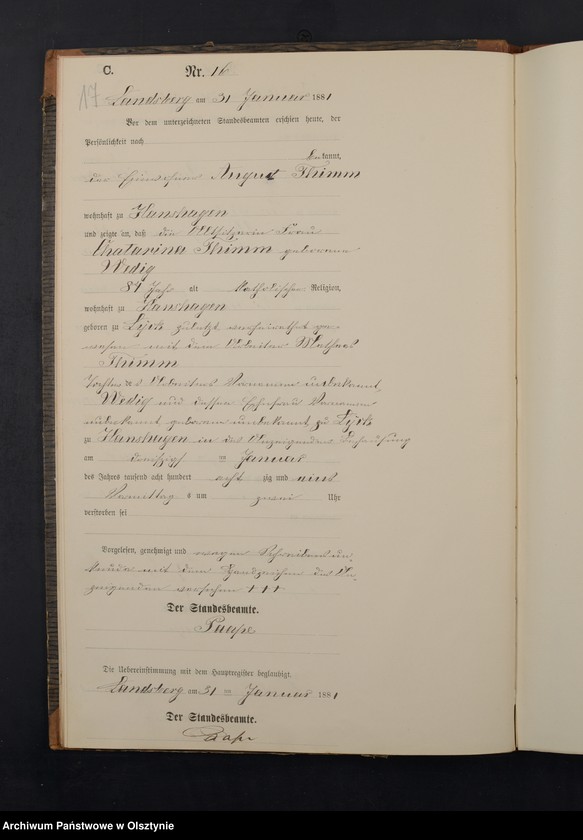 C. Nr. 16
17
Landsberg am 31 Januar 1881
Vor dem unterzeichneten Standesbeamten erschien heute, der
Persönlichkeit nach
bekannt,
der Einwohner August Thimm
wohnhaft zu Hanshagen
und zeigte an, daß die Altsitzerin Frau
Chatarina Thimm geborene
Wedig
84 Jahr alt Katholischer Religion,
wohnhaft zu Hanshagen
geboren zu zuletzt verheirathet ge-
wesen mit dem Arbeiter Mathes
Thimm
Tochter des Arbeiters Vornamen unbekannt
Wedig und dessen Ehefrau Vornamen
unbekannt geborene unbekannt zu
zu Hanshagen in des Anzeigenden Behausung
am dreißigsten Januar
des Jahres tausend acht hundert acht zig und eins
Vormittag s um zwei Uhr
verstorben sei
Vorgelesen, genehmigt und wegen Schreibens un-
kunde mit dem Handzeichen des An-
zeigenden versehen +++
Der Standesbeamte.
Paape
Die Uebereinstimmung mit dem Hauptregister beglaubigt.
Landsberg am 31 Januar 1881
Der Standesbeamte.
Paape
Archiwum Państwowe w Olsztynie